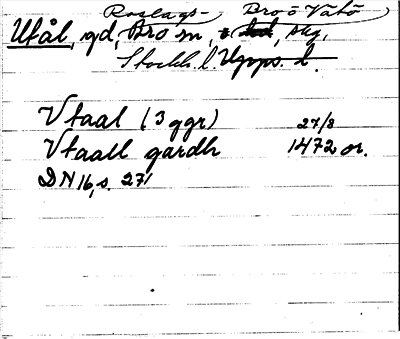 Roslags- Bro o Vätö
Utål, gd, Bro sn, skg,
Stockh. l. Upps. l.
Vtaal (3 ggr) 27/8
Vtaall gardh 1472 or.
DN 16, s. 271